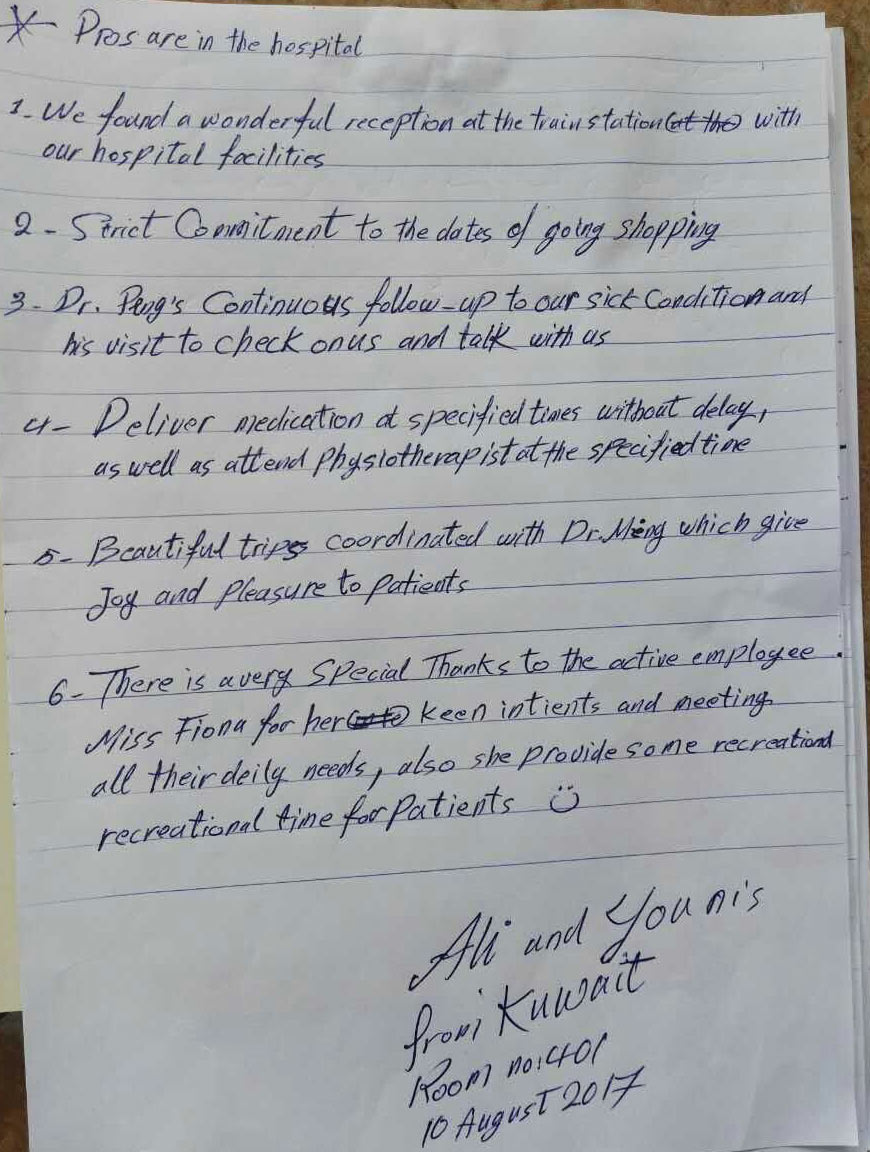 * Pros are in the hospital
1- We found a wonderful reception at the train station (at the) with
our hospital facilities
2 - Strict Commitment to the dates of going shopping
3 - Dr. Peng's Continuous follow-up to our sick Condition and
his visit to check on us and talk with us
4- Deliver medication at specified times without delay,
as well as attend Physiotherapist at the specified time
5- Beautiful trips coordinated with Dr. Ming which give
Joy and Pleasure to Patients
6- There is a very Special Thanks to the active employee.
Miss Fiona for her keen intients and meeting
all their deily needs, also she provide some recreational
recreational time for Patients ☺
Ali and Younis
from Kuwait
Room no:401
10 August 2017